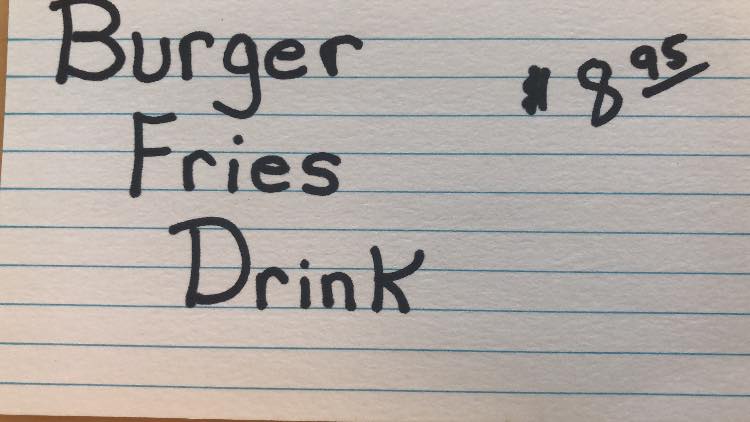 Burger $8.95
Fries
Drink